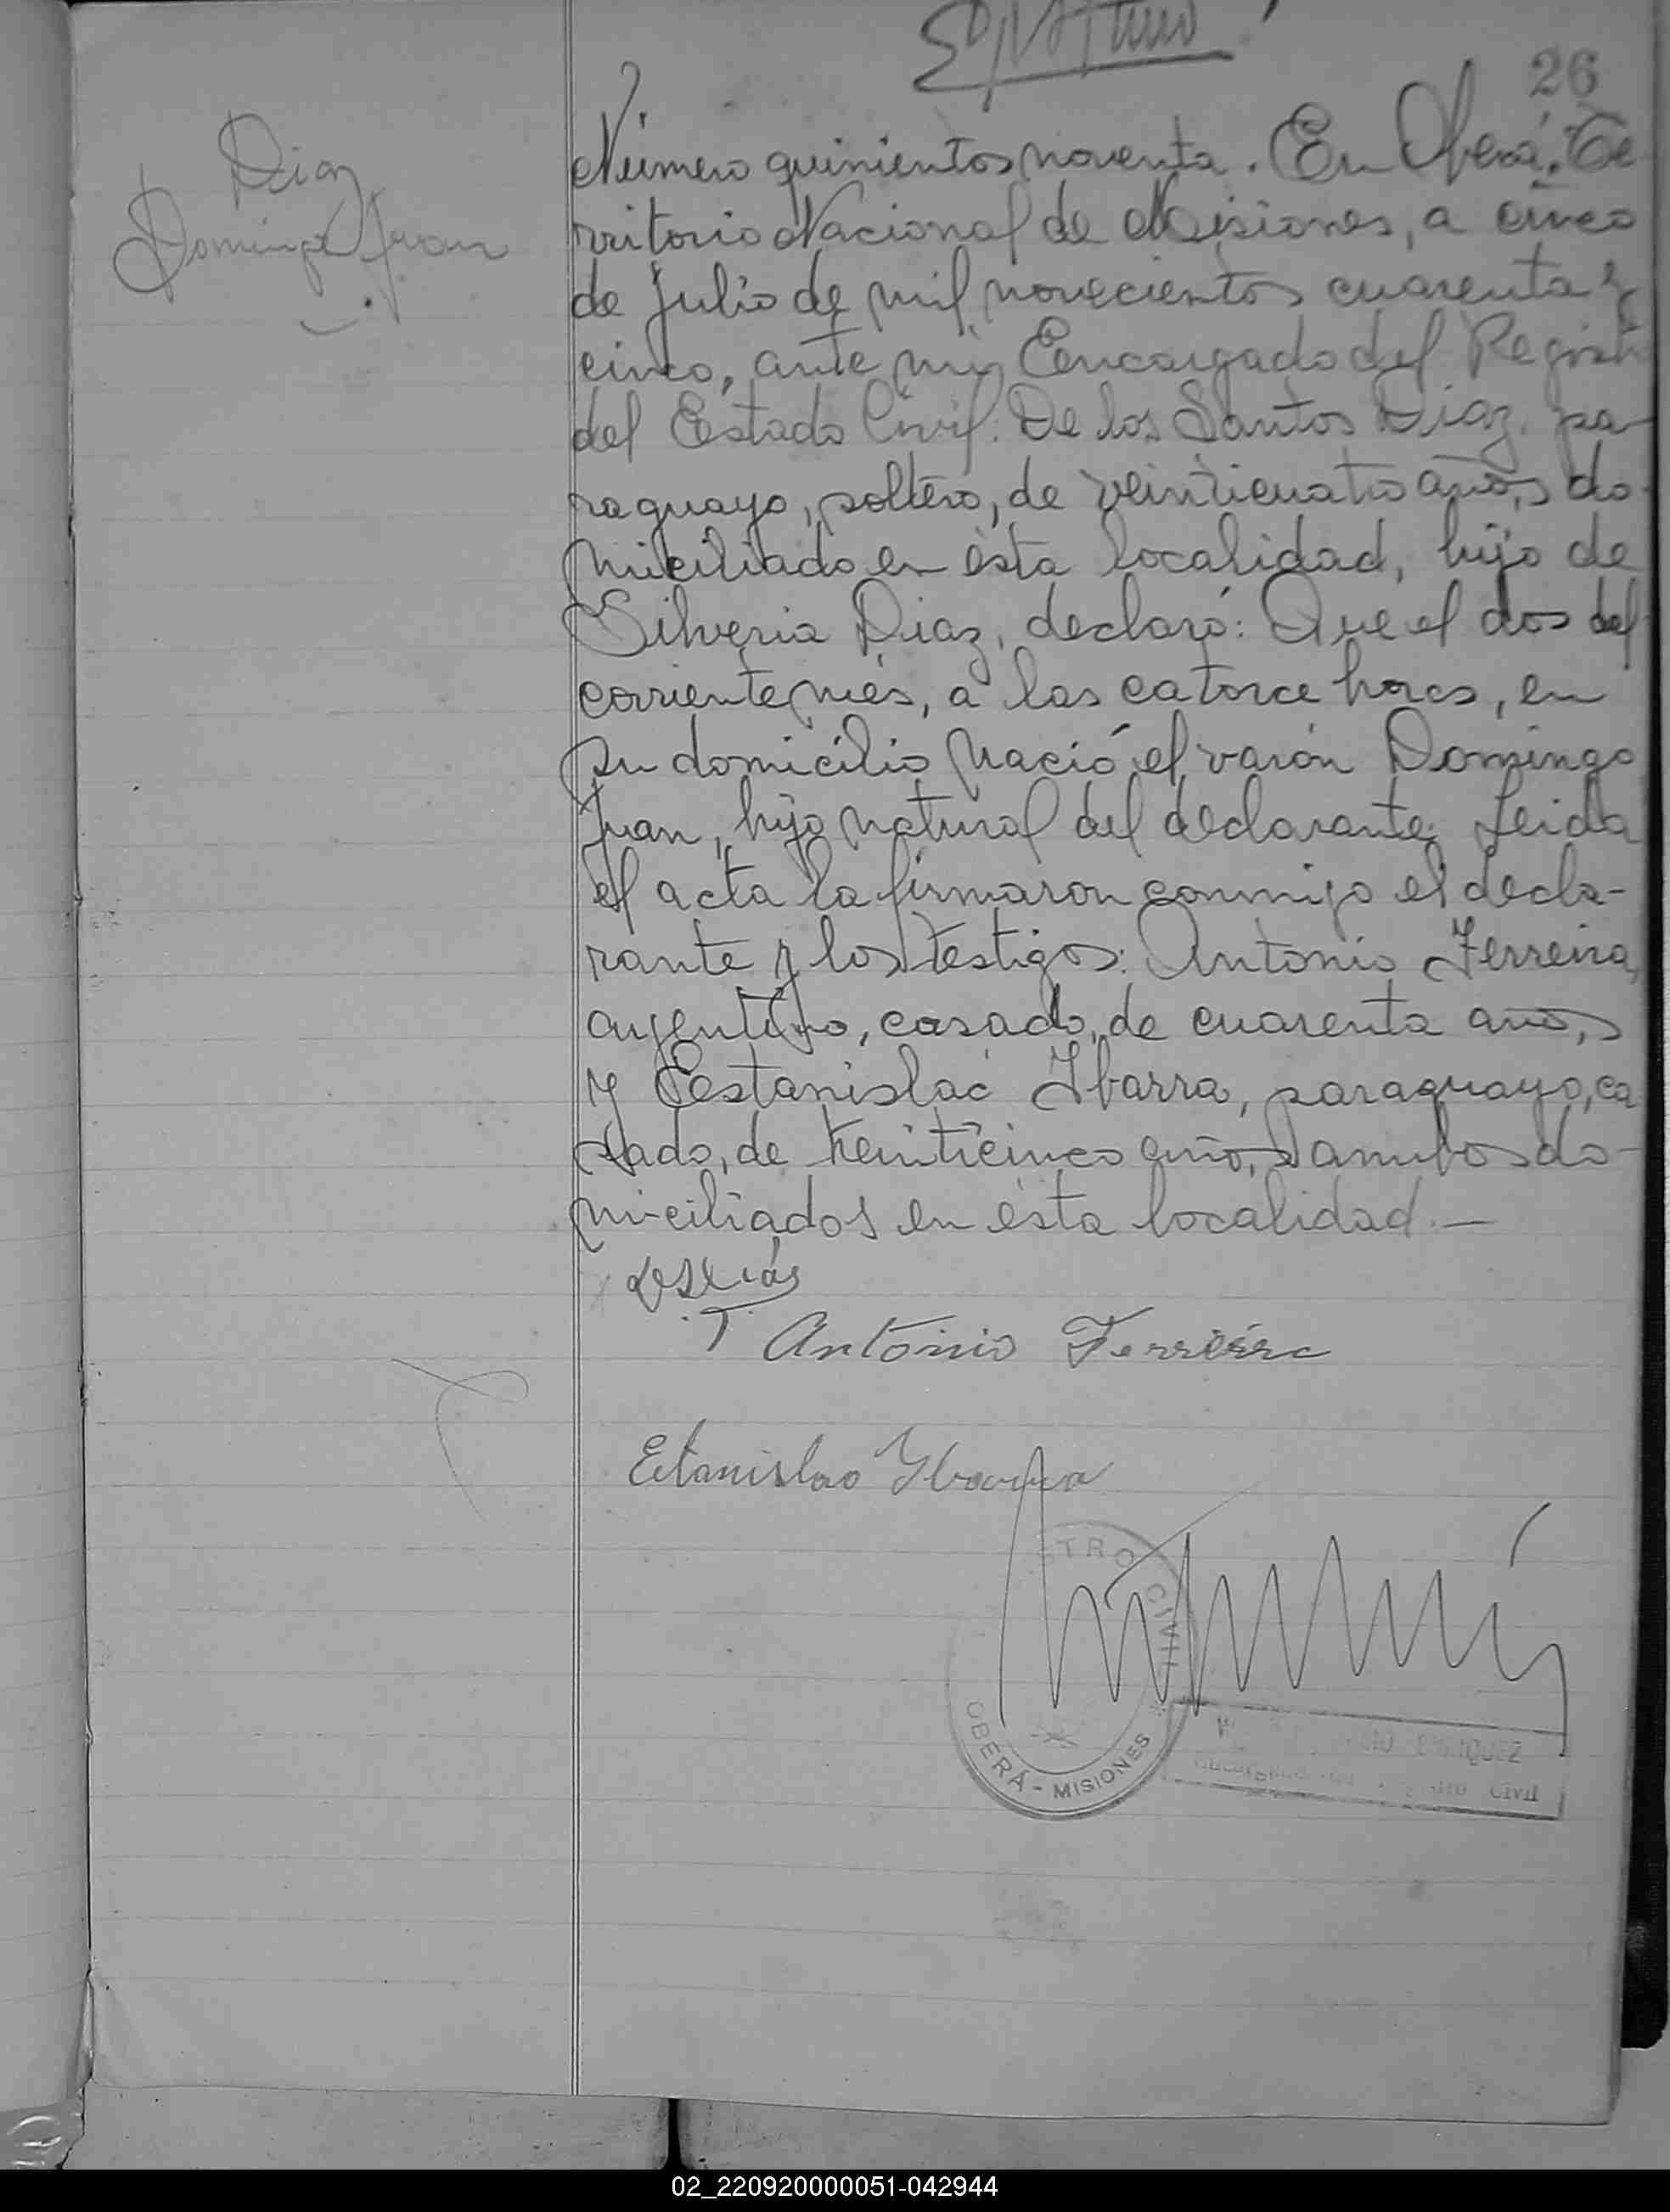 26
Diaz
Domingo Juan
Número quinientos noventa. En Oberá, Te
rritorio Nacional de Misiones, a cinco
de Julio de mil novecientos cuarenta y
cinco, ante mi, Encargado del Registro
del Estado Civil: De los Santos Diaz, pa-
raguayo, soltero, de veinticuatro años, do-
miciliado en ésta localidad, hijo de
Silveria Diaz, declaró: Que el dos del
corriente més, a las catorce horas, en
su domicilio nació el varón Domingo
Juan, hijo natural del declarante. Leida
el acta la firmaron conmigo el decla-
rante y los testigos: Antonio Ferreira,
argentino, casado, de cuarenta años,
y Estanislao Ibarra, paraguayo, ca
sado, de treinticinco años, ambos do-
miciliados en ésta localidad.—
Antonio Ferreira
Estanislao Ybarra
STRO CIVIL
OBERÁ - MISIONES
CIVIL
02_220920000051-042944